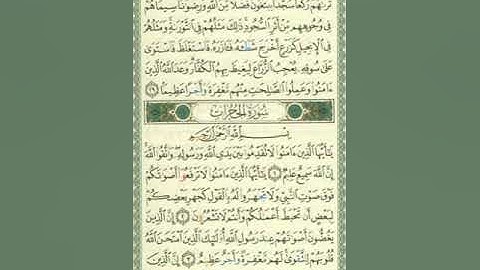 تَرَىٰهُمْ رُكَّعًا سُجَّدًا يَبْتَغُونَ فَضْلًا مِّنَ ٱللَّهِ وَرِضْوَٰنًا سِيمَاهُمْ
فِى وُجُوهِهِم مِّنْ أَثَرِ ٱلسُّجُودِ ذَٰلِكَ مَثَلُهُمْ فِى ٱلتَّوْرَىٰةِ وَمَثَلُهُمْ
فِى ٱلْإِنجِيلِ كَزَرْعٍ أَخْرَجَ شَطْـَٔهُۥ فَـَٔازَرَهُۥ فَٱسْتَغْلَظَ فَٱسْتَوَىٰ
عَلَىٰ سُوقِهِۦ يُعْجِبُ ٱلزُّرَّاعَ لِيَغِيظَ بِهِمُ ٱلْكُفَّارَ وَعَدَ ٱللَّهُ ٱلَّذِينَ
ءَامَنُوا۟ وَعَمِلُوا۟ ٱلصَّـٰلِحَـٰتِ مِنْهُم مَّغْفِرَةً وَأَجْرًا عَظِيمًۢا ٢٩
سُورَةُ الحُجُرَاتِ
بِسْمِ ٱللَّهِ ٱلرَّحْمَـٰنِ ٱلرَّحِيمِ
يَـٰٓأَيُّهَا ٱلَّذِينَ ءَامَنُوا۟ لَا تُقَدِّمُوا۟ بَيْنَ يَدَىِ ٱللَّهِ وَرَسُولِهِۦ وَٱتَّقُوا۟ ٱللَّهَ
إِنَّ ٱللَّهَ سَمِيعٌ عَلِيمٌ ١ يَـٰٓأَيُّهَا ٱلَّذِينَ ءَامَنُوا۟ لَا تَرْفَعُوٓا۟ أَصْوَٰتَكُمْ
فَوْقَ صَوْتِ ٱلنَّبِىِّ وَلَا تَجْهَرُوا۟ لَهُۥ بِٱلْقَوْلِ كَجَهْرِ بَعْضِكُمْ
لِبَعْضٍ أَن تَحْبَطَ أَعْمَـٰلُكُمْ وَأَنتُمْ لَا تَشْعُرُونَ ٢ إِنَّ ٱلَّذِينَ
يَغُضُّونَ أَصْوَٰتَهُمْ عِندَ رَسُولِ ٱللَّهِ أُو۟لَـٰٓئِكَ ٱلَّذِينَ ٱمْتَحَنَ ٱللَّهُ
قُلُوبَهُمْ لِلتَّقْوَىٰ لَهُم مَّغْفِرَةٌ وَأَجْرٌ عَظِيمٌ ٣ إِنَّ ٱلَّذِينَ